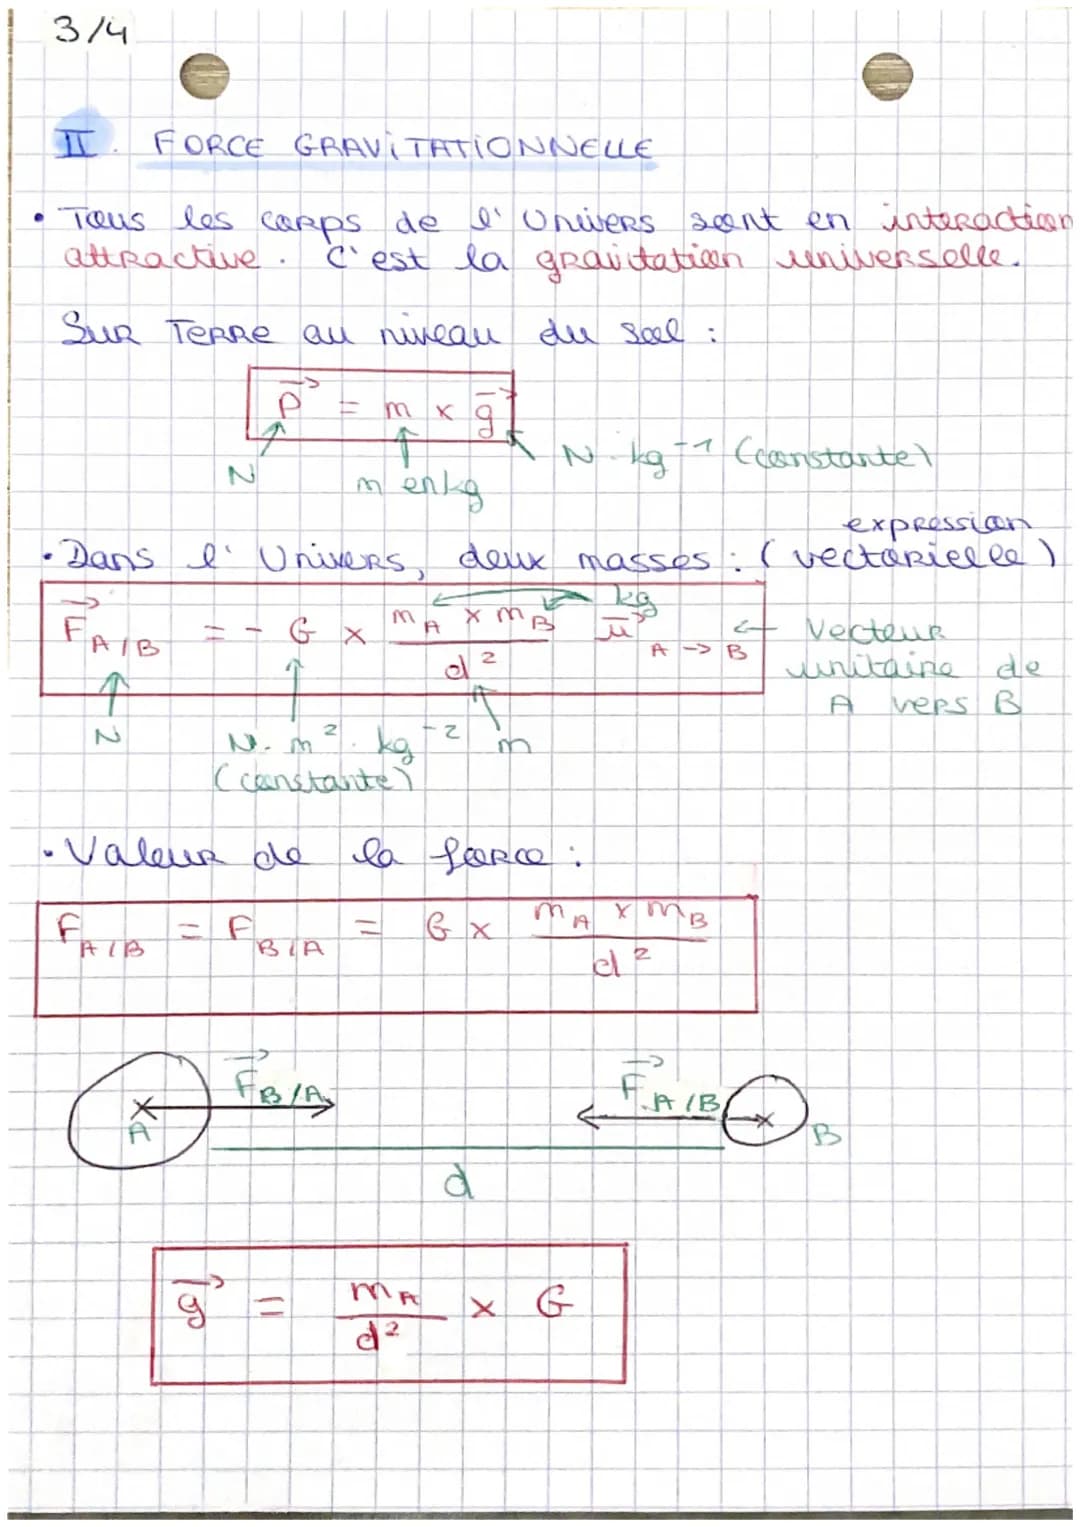 3/4
II. FORCE GRAVITATIONNELLE
• Tous les corps de l'Univers sont en interaction
attractive. C'est la gravitation universelle.
Sur Terre au niveau du sol :
P⃗ = m × g⃗
N
m en kg
N·kg⁻¹ (constante)
expression
• Dans l'Univers, deux masses : (vectorielle)
kg
F⃗ A/B = - G × (mA × mB)/d² u⃗ A->B
Vecteur
unitaire de
A vers B
N
N.m².kg⁻²
m
(constante)
• Valeur de la force :
F A/B = F B/A = G × (mA × mB)/d²
F⃗ B/A
F⃗ A/B
A
B
d
g⃗ = mA/d² × G